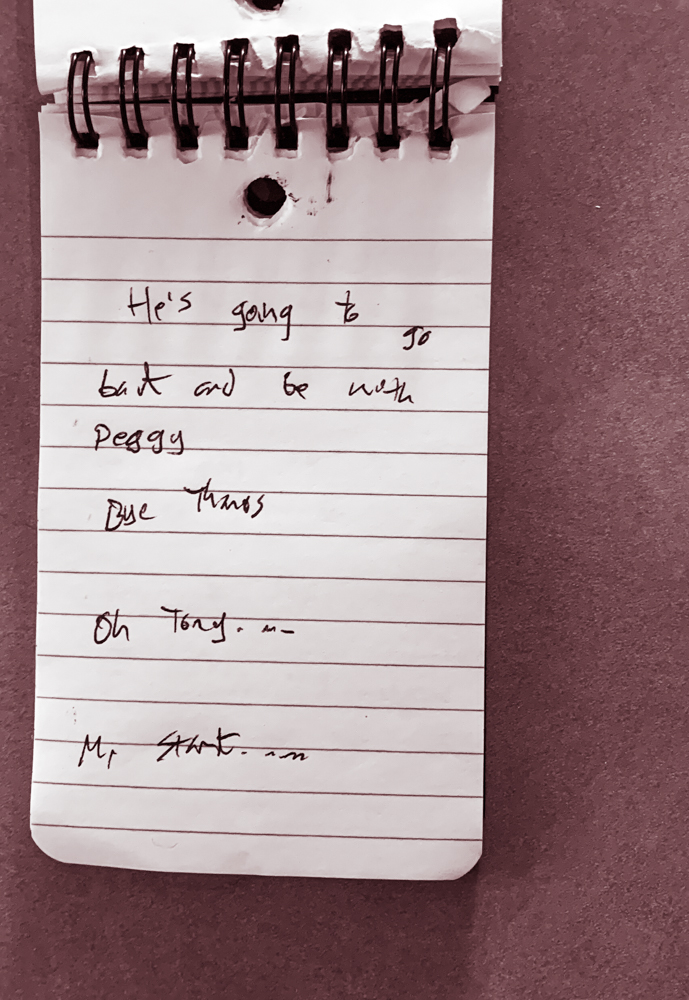 He's going to go
back and be with
Peggy
Bye Thanos
Oh Tony. ...
Mr Stark. ....